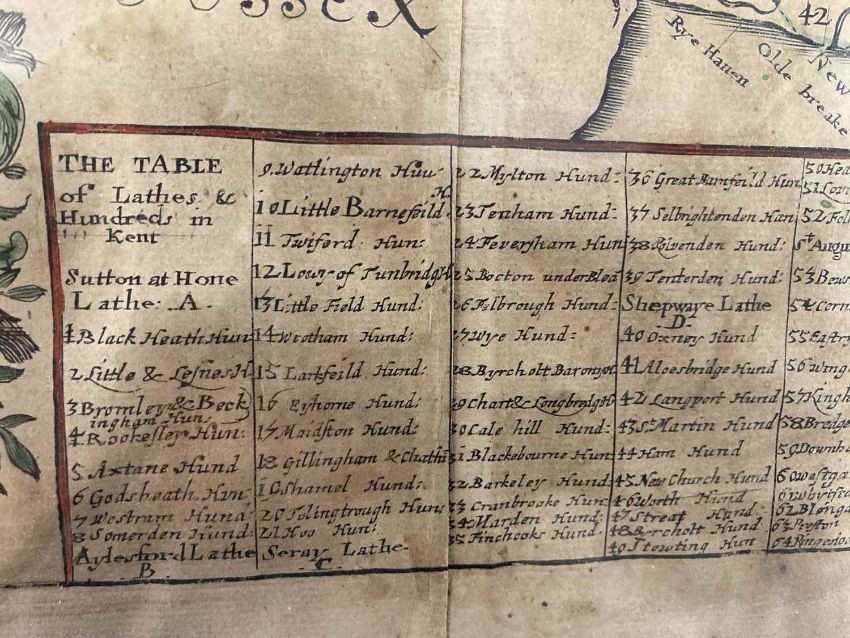 SSEX
42
Rye Hauen
Olde breake
New
THE TABLE
of Lathes &
Hundreds in
Kent
Sutton at Hone
Lathe. A.
1 Black Heath Hun
2 Little & Lesnes H
3 Bromley & Beck
ingham Hun:
4 Rookesley Hun:
5 Axtane Hund
6 Godsheath Hun:
7 Westram Hund
8 Somerden Hund:
Aylesford Lathe
B
9 Watlington Huu
H
10 Little Barnefeild
11 Twiford Hun:
12 Lowy of Tunbridg H
13 Little Field Hund:
14 Wrotham Hund:
15 Larkfeild Hund:
16 Eyhorne Hund:
17 Maidston Hund:
18 Gillingham & Chatha
19 Shamel Hund:
20 Tolingtrough Hun:
21 Hoo Hun:
Seray Lathe
C
22 Mylton Hund:
23 Tenham Hund:
24 Feversham Hun
25 Bocton under Blea
26 Felbrough Hund:
27 Wye Hund:
28 Byrcholt Barony
29 Chart & Longbredg H
30 Cale hill Hund:
31 Blackebourne Hun:
32 Barkeley Hund:
33 Cranbrooke Hun:
34 Marden Hund:
35 Finchcoks Hund:
36 Great Barnfeild Hun
37 Selbrightenden Hun
38 Rovenden Hund:
39 Tenterden Hund:
Shepwaye Lathe
D
40 Oxney Hund
41 Aloesbridge Hund
42 Langport Hund
43 St Martin Hund:
44 Ham Hund
45 New Church Hund
46 Worth Hund
47 Streat Hund:
48 Byrcholt Hund
49 Stowting Hun
50 Hea
51
52 Fol
St Augu
53 Bews
54 Corn
55 Eastry
56 Wingh
57 Kingh
58 Bredge
59 Downha
60 Westga
61
62 Blenga
63 Preston
64 Ringeslo